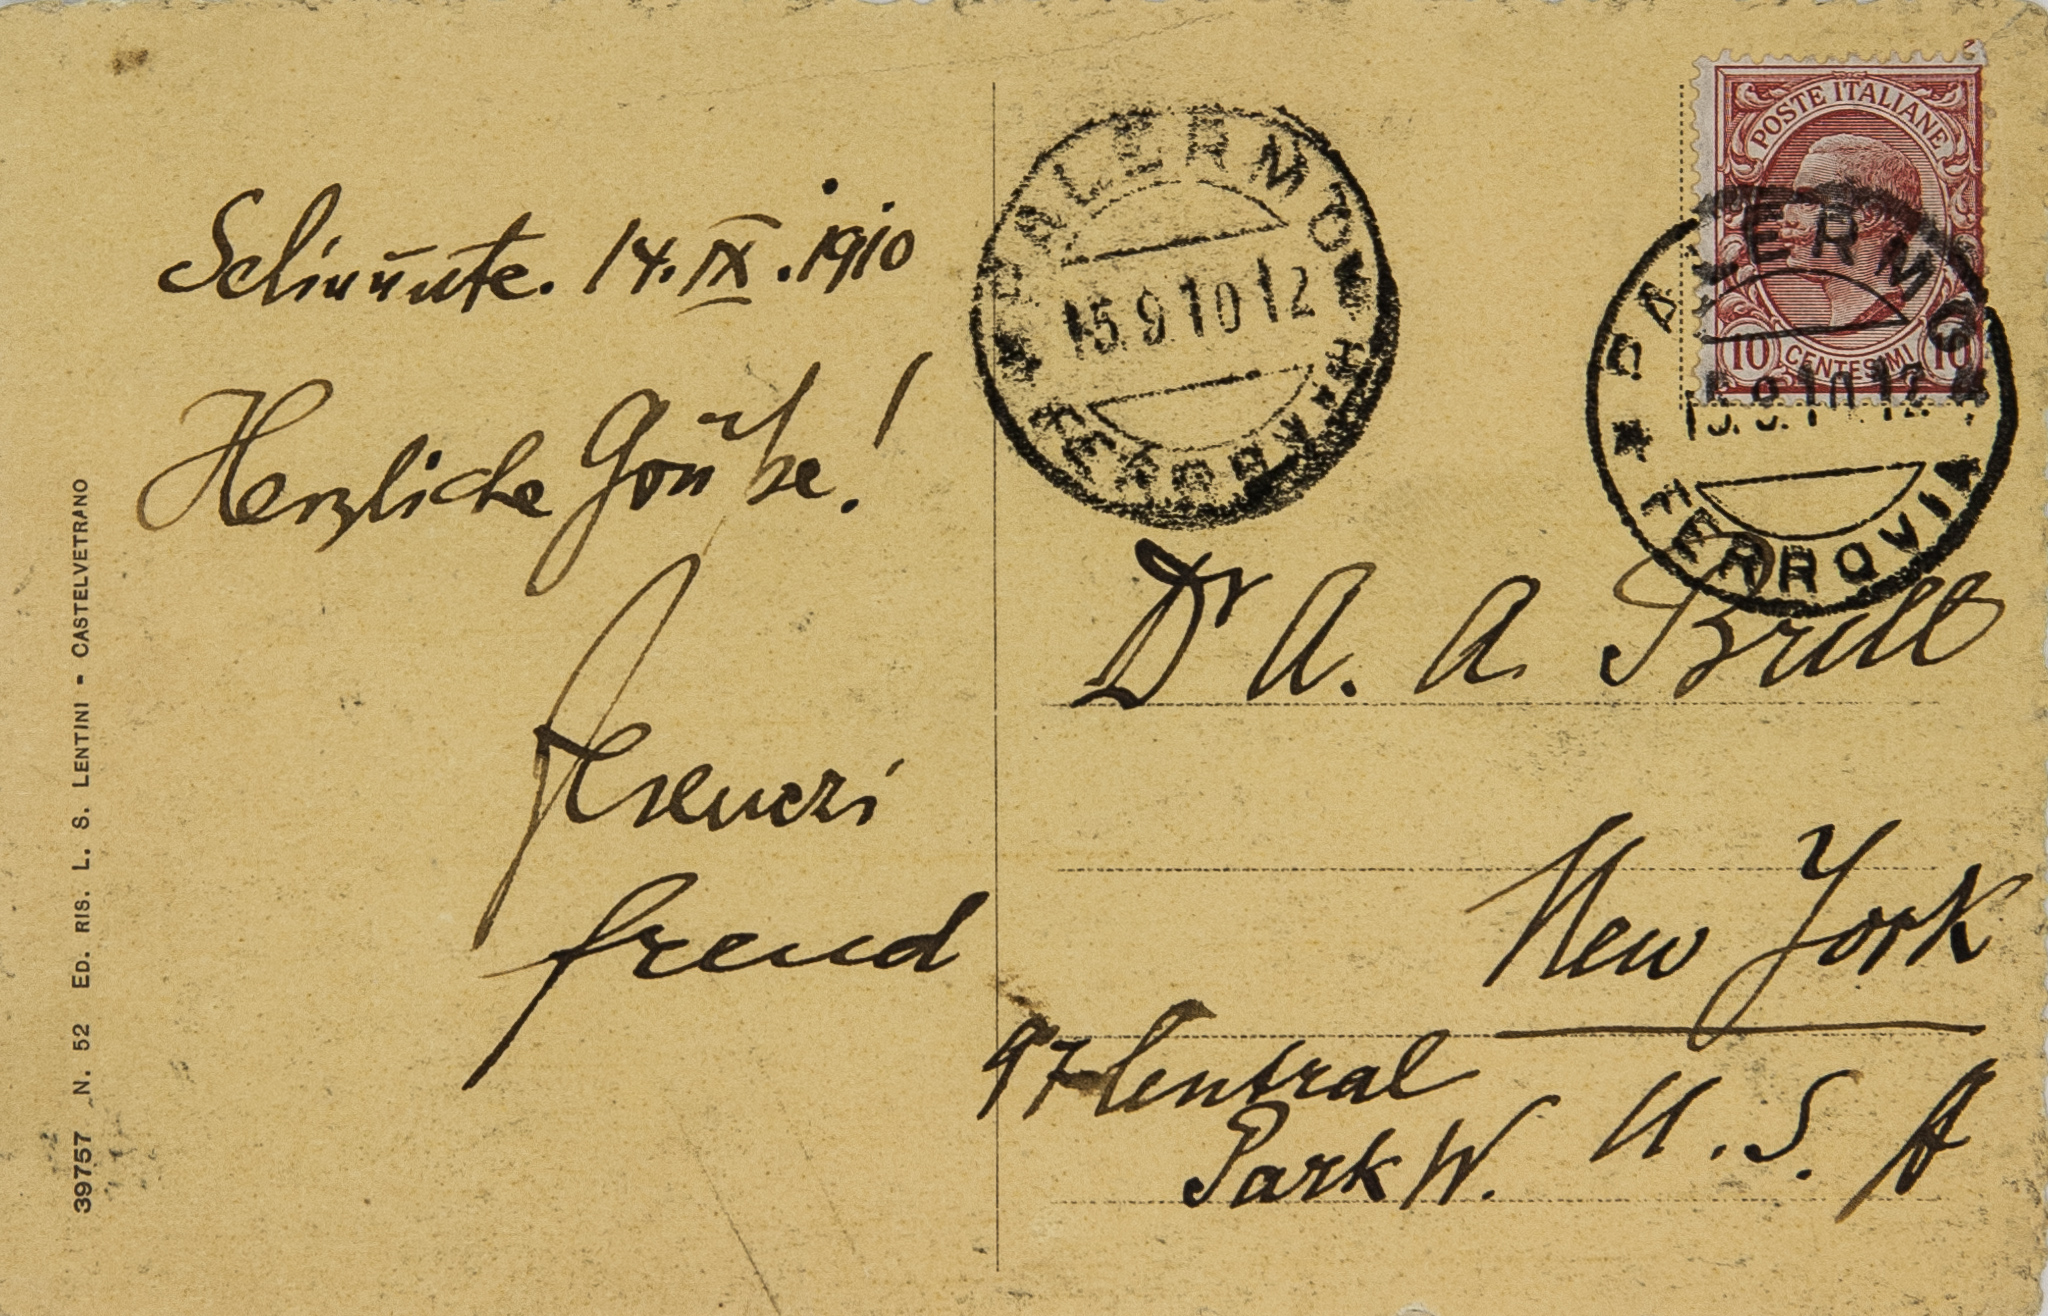 Selinunte. 14. IX. 1910
Herzliche Grüße!
Ferenczi
freud
39757 N. 52 ED. RIS. L. S. LENTINI - CASTELVETRANO
PALERMO
15.9.10 12
FERROVIA
POSTE ITALIANE
10 CENTESIMI 10
PALERMO
15.9.10 12
FERROVIA
Dr A. A. Brill
New York
97 Central
Park W. U. S. A